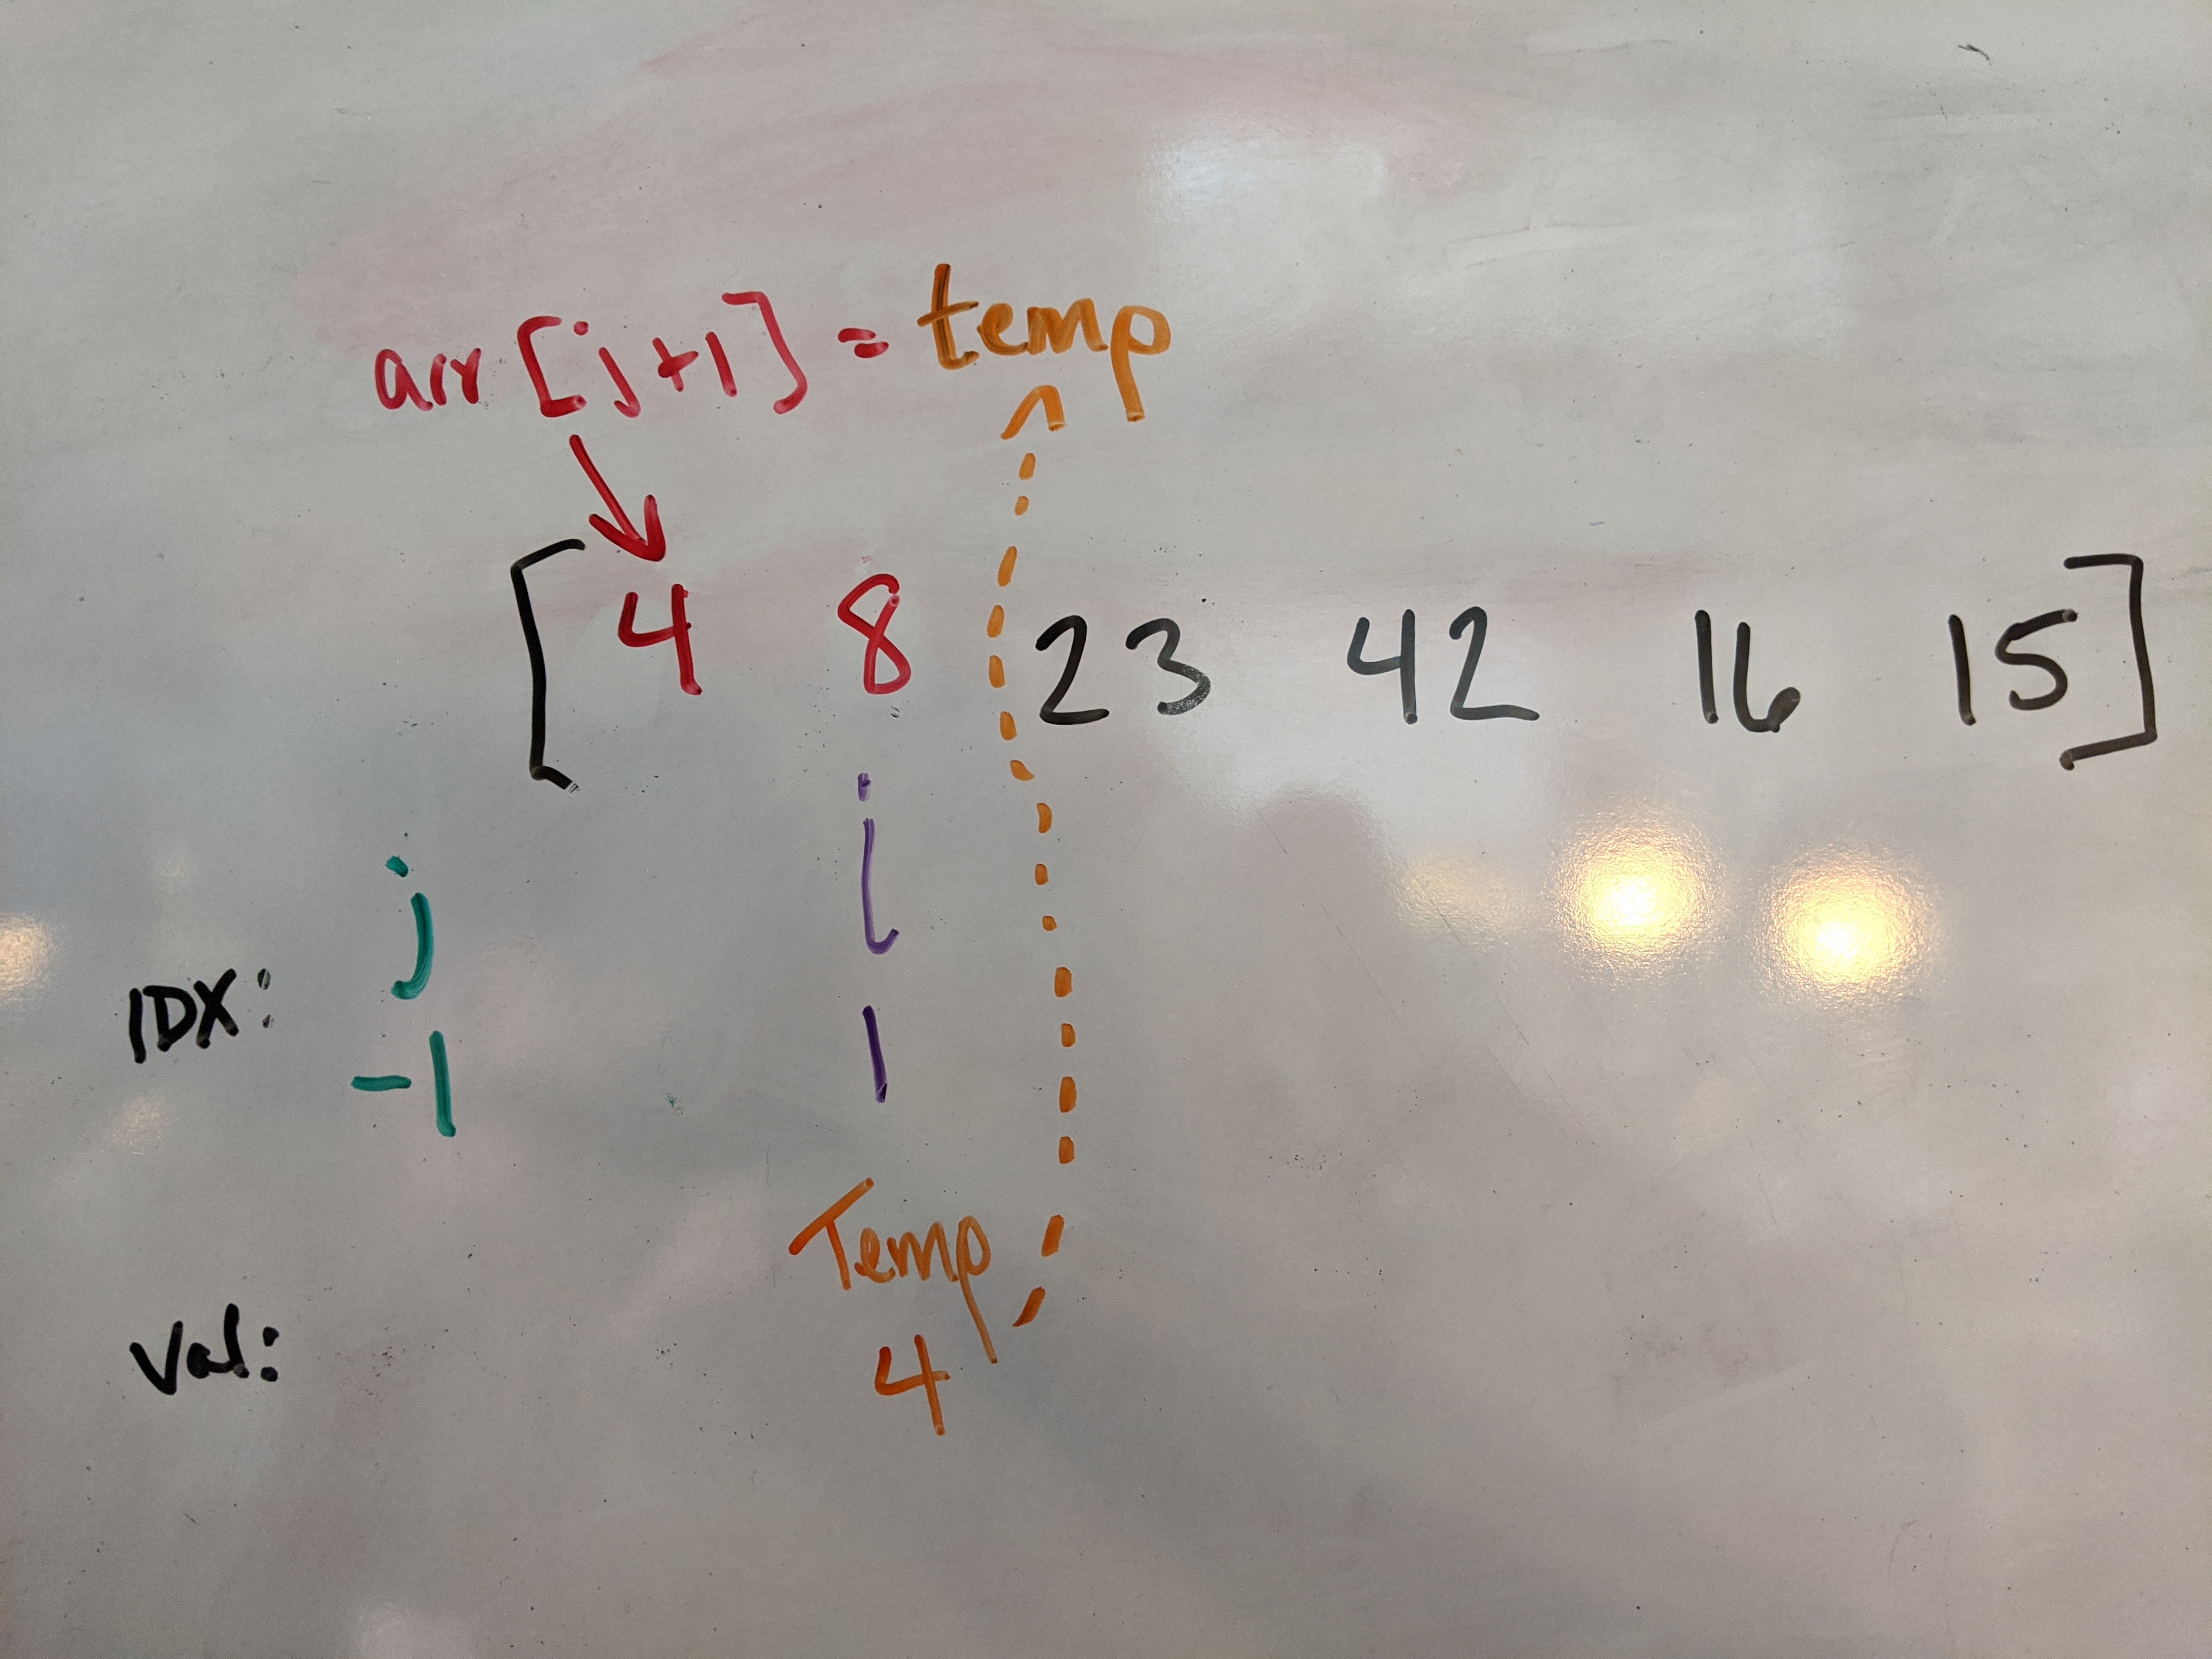 arr[j+1] = temp
[4 8 23 42 16 15]
j i
IDX: -1 1
Temp
Val: 4